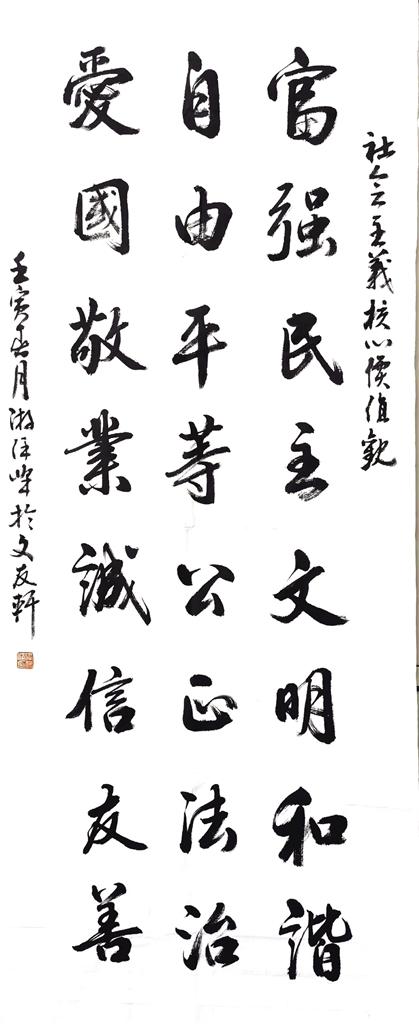 社会主義核心價值觀
富强民主文明和諧
自由平等公正法治
愛國敬業誠信友善
壬寅春月淑佺書於文友軒